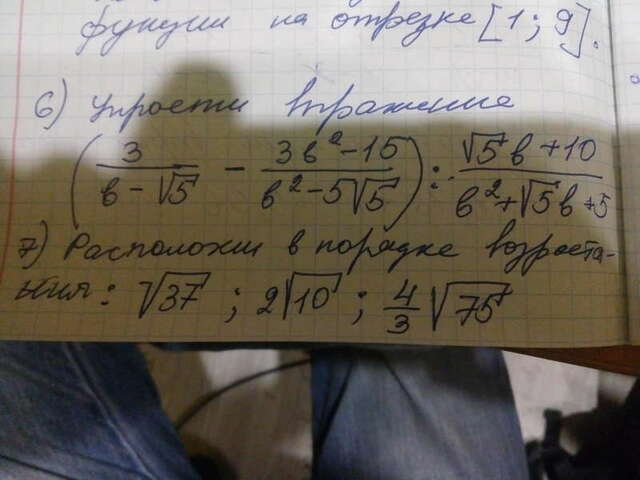 функции на отрезке [1; 9].
6) Упрости выражение
(3/(b - √5) - (3b² - 15)/(b² - 5√5)) : (√5b + 10)/(b² + √5b + 5)
7) Расположи в порядке возроста-
ния: √37 ; 2√10 ; 4/3 √75